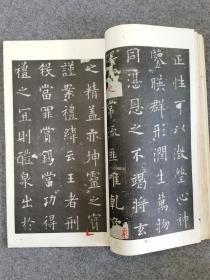 正性可以澂瑩心神
鑒暎群形潤生萬物
同湛恩之不竭將玄
常流匪唯乾
之精盖亦坤靈之寶
謹案禮緯云王者刑
殺當罪賞錫當功得
禮之宜則醴泉出於